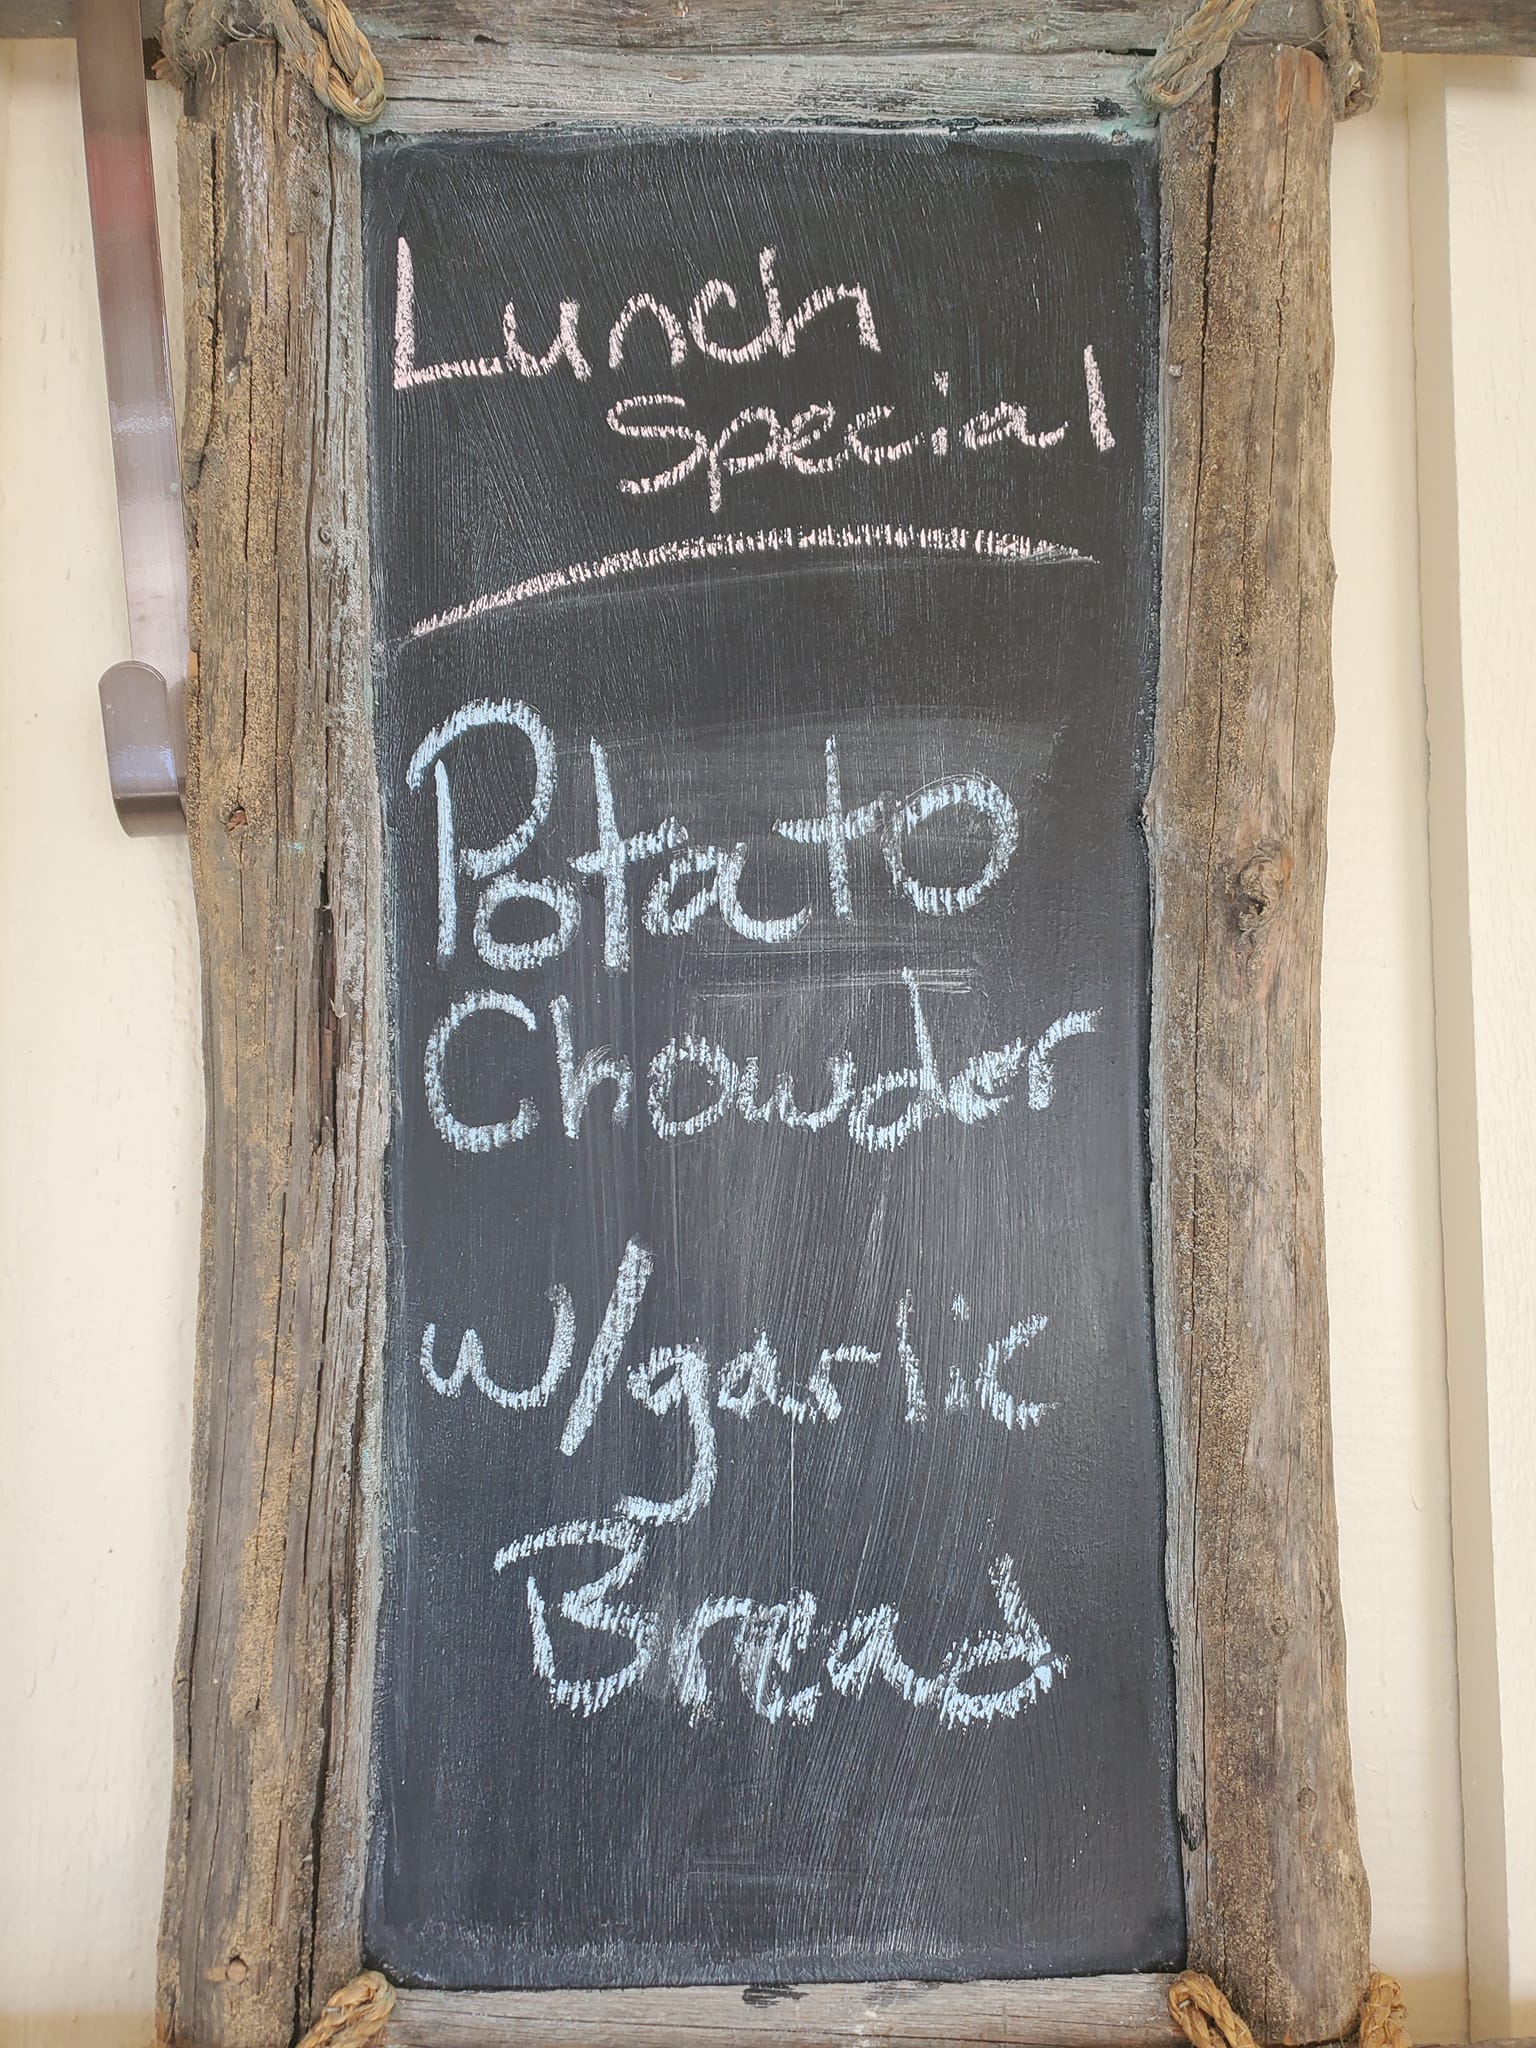 Lunch
special
Potato
Chowder
w/garlic
Bread